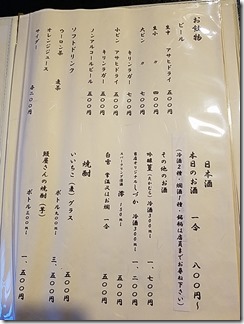 お飲物
ビール
生中 アサヒドライ 五〇〇円
生小 〃 四〇〇円
大ビン 〃 七〇〇円
キリンラガー 七〇〇円
小ビン アサヒドライ 五〇〇円
キリンラガー 五〇〇円
ノンアルコールビール 五〇〇円
ソフトドリンク
ウーロン茶 麦茶
オレンジジュース
サイダー 各二〇〇円
日本酒
本日のお酒 一合 八〇〇円~
(冷酒2種・燗酒1種 銘柄は店員までお尋ね下さい)
その他のお酒
吟醸 冷酒300ml 一、七〇〇円
当店オリジナル 冷酒300ml 一、二〇〇円
スパークリング清酒 澪 150ml 六〇〇円
白雪 常温又はお燗 一合 五〇〇円
焼酎
いいちこ(麦) グラス 五〇〇円
ボトル 三、五〇〇円
鰻屋さんの焼酎(芋)
ボトル 一、五〇〇円